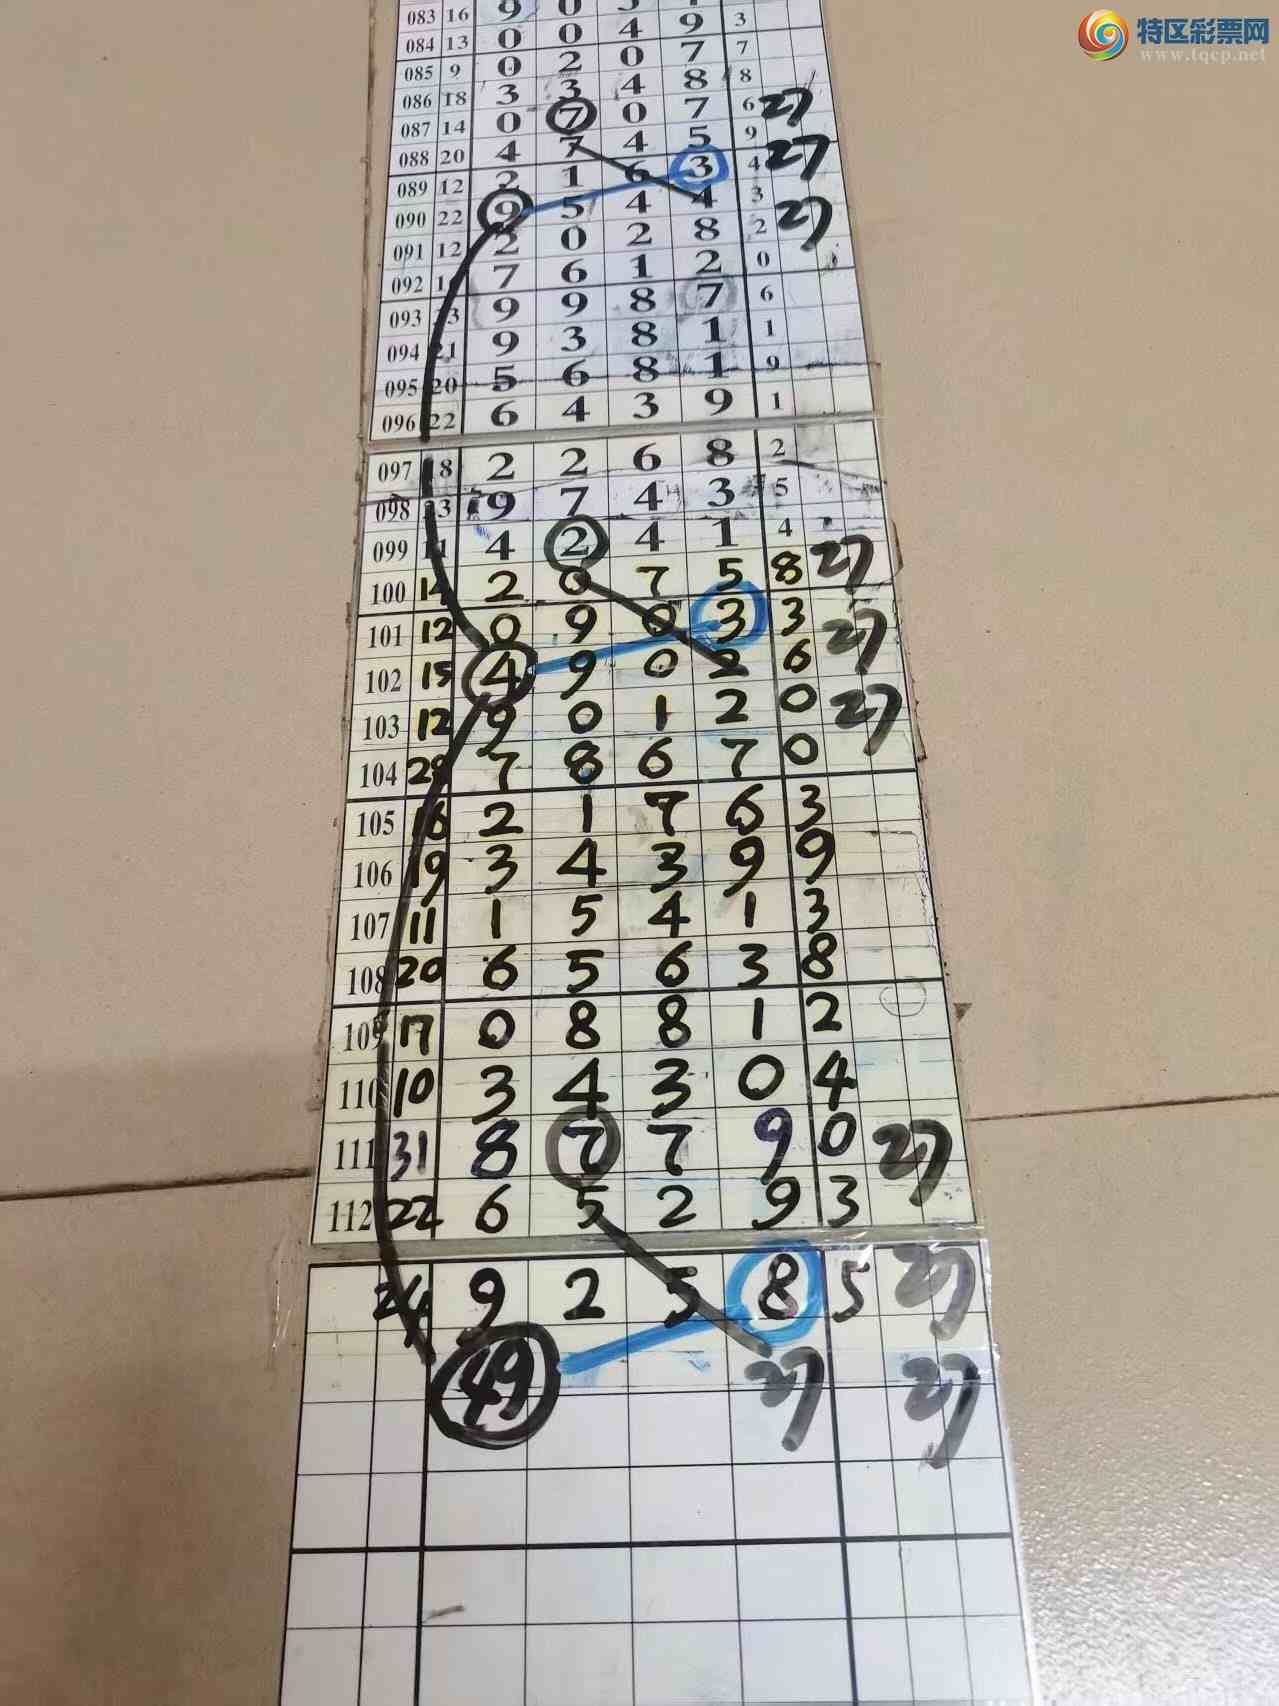 特区彩票网
www.tqcp.net
083 16 9 0
084 13 0 0 4 9 3
085 9 0 2 0 7 7
086 18 3 3 4 8 8
087 14 0 7 0 7 6 27
088 20 4 7 4 5 9 27
089 12 2 1 6 3 4
090 22 9 5 4 4 3 27
091 12 2 0 2 8 2
092 7 6 1 2 0
093 33 9 9 8 7 6
094 21 9 3 8 1 1
095 20 5 6 8 1 9
096 22 6 4 3 9 1
097 18 2 2 6 8 2
098 23 9 7 4 3 5
099 11 4 2 4 1 4 27
100 14 2 0 7 5 8
101 12 0 9 0 3 3 27
102 15 4 9 0 2 6
103 12 9 0 1 2 0 27
104 28 7 8 6 7 0
105 16 2 1 7 6 3
106 19 3 4 3 9 9
107 11 1 5 4 1 3
108 20 6 5 6 3 8
109 17 0 8 8 1 2
110 10 3 4 3 0 4
111 31 8 7 7 9 0 27
112 22 6 5 2 9 3
24 9 2 5 8 5 27
49 27 27